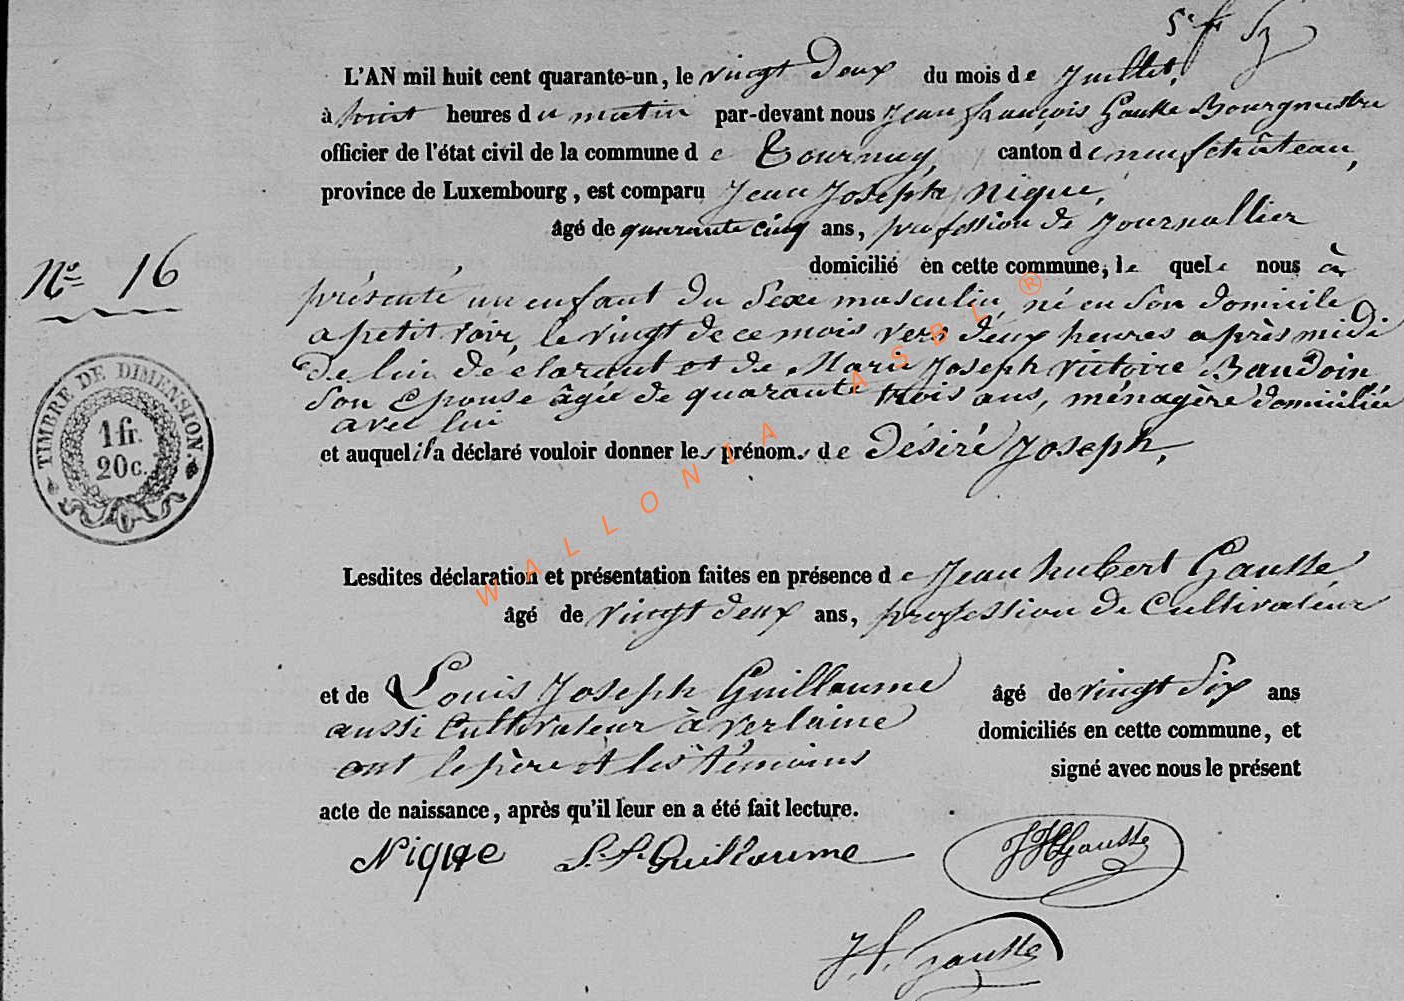 L'AN mil huit cent quarante-un, le vingt deux du mois de Juillet,
à huit heures du matin par-devant nous Jean françois Gausse Bourgmestre
officier de l'état civil de la commune de Tournay, canton de neufchâteau,
province de Luxembourg, est comparu Jean Joseph Nique,
âgé de quarante cinq ans, profession de Journallier
domicilié en cette commune, le quel nous a
présenté un enfant du Sexe masculin, né en Son domicile
a petit voir, le vingt de ce mois vers deux heures après midi
de lui déclarant et de Marie Joseph Victoire Baudoin
Son Epouse âgée de quarante trois ans, ménagère domiciliée
avec lui
et auquel il a déclaré vouloir donner les prénoms de Désiré Joseph,
No 16
TIMBRE DE DIMENSION.
1 fr.
20 c.
Lesdites déclaration et présentation faites en présence de Jean hubert Gausse,
âgé de vingt deux ans, profession de Cultivateur
et de Louis Joseph Guillaume âgé de vingt Six ans
aussi Cultivateur à verlaine domiciliés en cette commune, et
ont le père et les témoins signé avec nous le présent
acte de naissance, après qu'il leur en a été fait lecture.
Nique L. J. Guillaume JHGausse
J. f. Gausse
WALLONIA ASBL ®